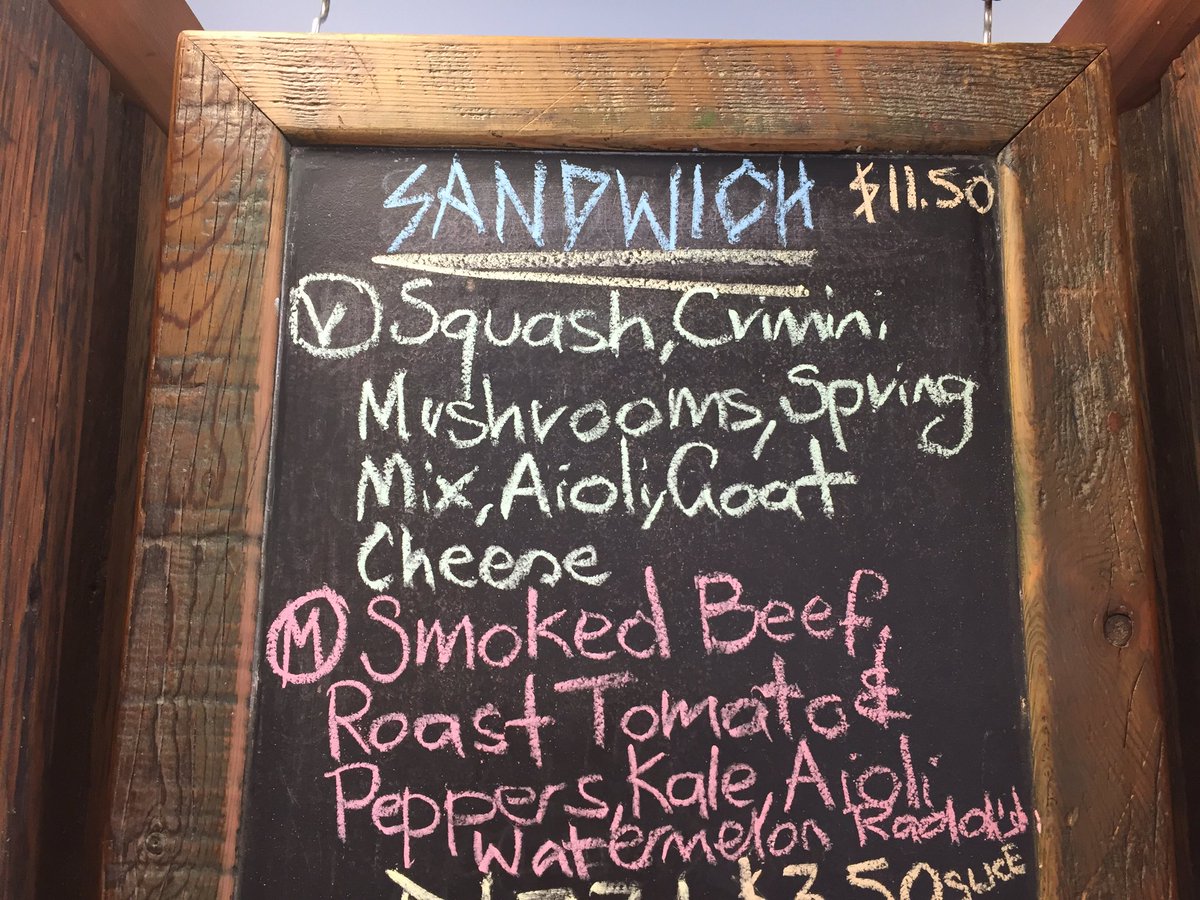 SANDWICH $11.50
V Squash, Crimini
Mushrooms, Spring
Mix, Aioli, Goat
Cheese
M Smoked Beef,
Roast Tomato &
Peppers, Kale, Aioli
Watermelon Radish
$3.50 SLICE